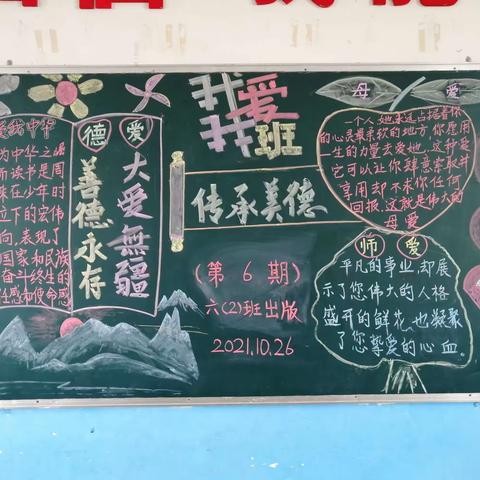 爱我中华
为中华之崛
而读书是周
来在少年时
立下的宏伟
向,表现了
国家和民族
奋斗终生的
任感和使命感
德 爱
大爱無疆
善德永存
我爱
我班
传承美德
(第6期)
六(2)班出版
2021.10.26
母 爱
一个人,她永远占据着你
的心灵最柔软的地方,你愿用
一生的力量去爱她,这种爱
它可以让你肆意索取并
享用却不求你任何
回报,这就是伟大的
母爱
师 爱
平凡的事业,却展
示了您伟大的人格
盛开的鲜花,也凝聚
了您挚爱的心血。